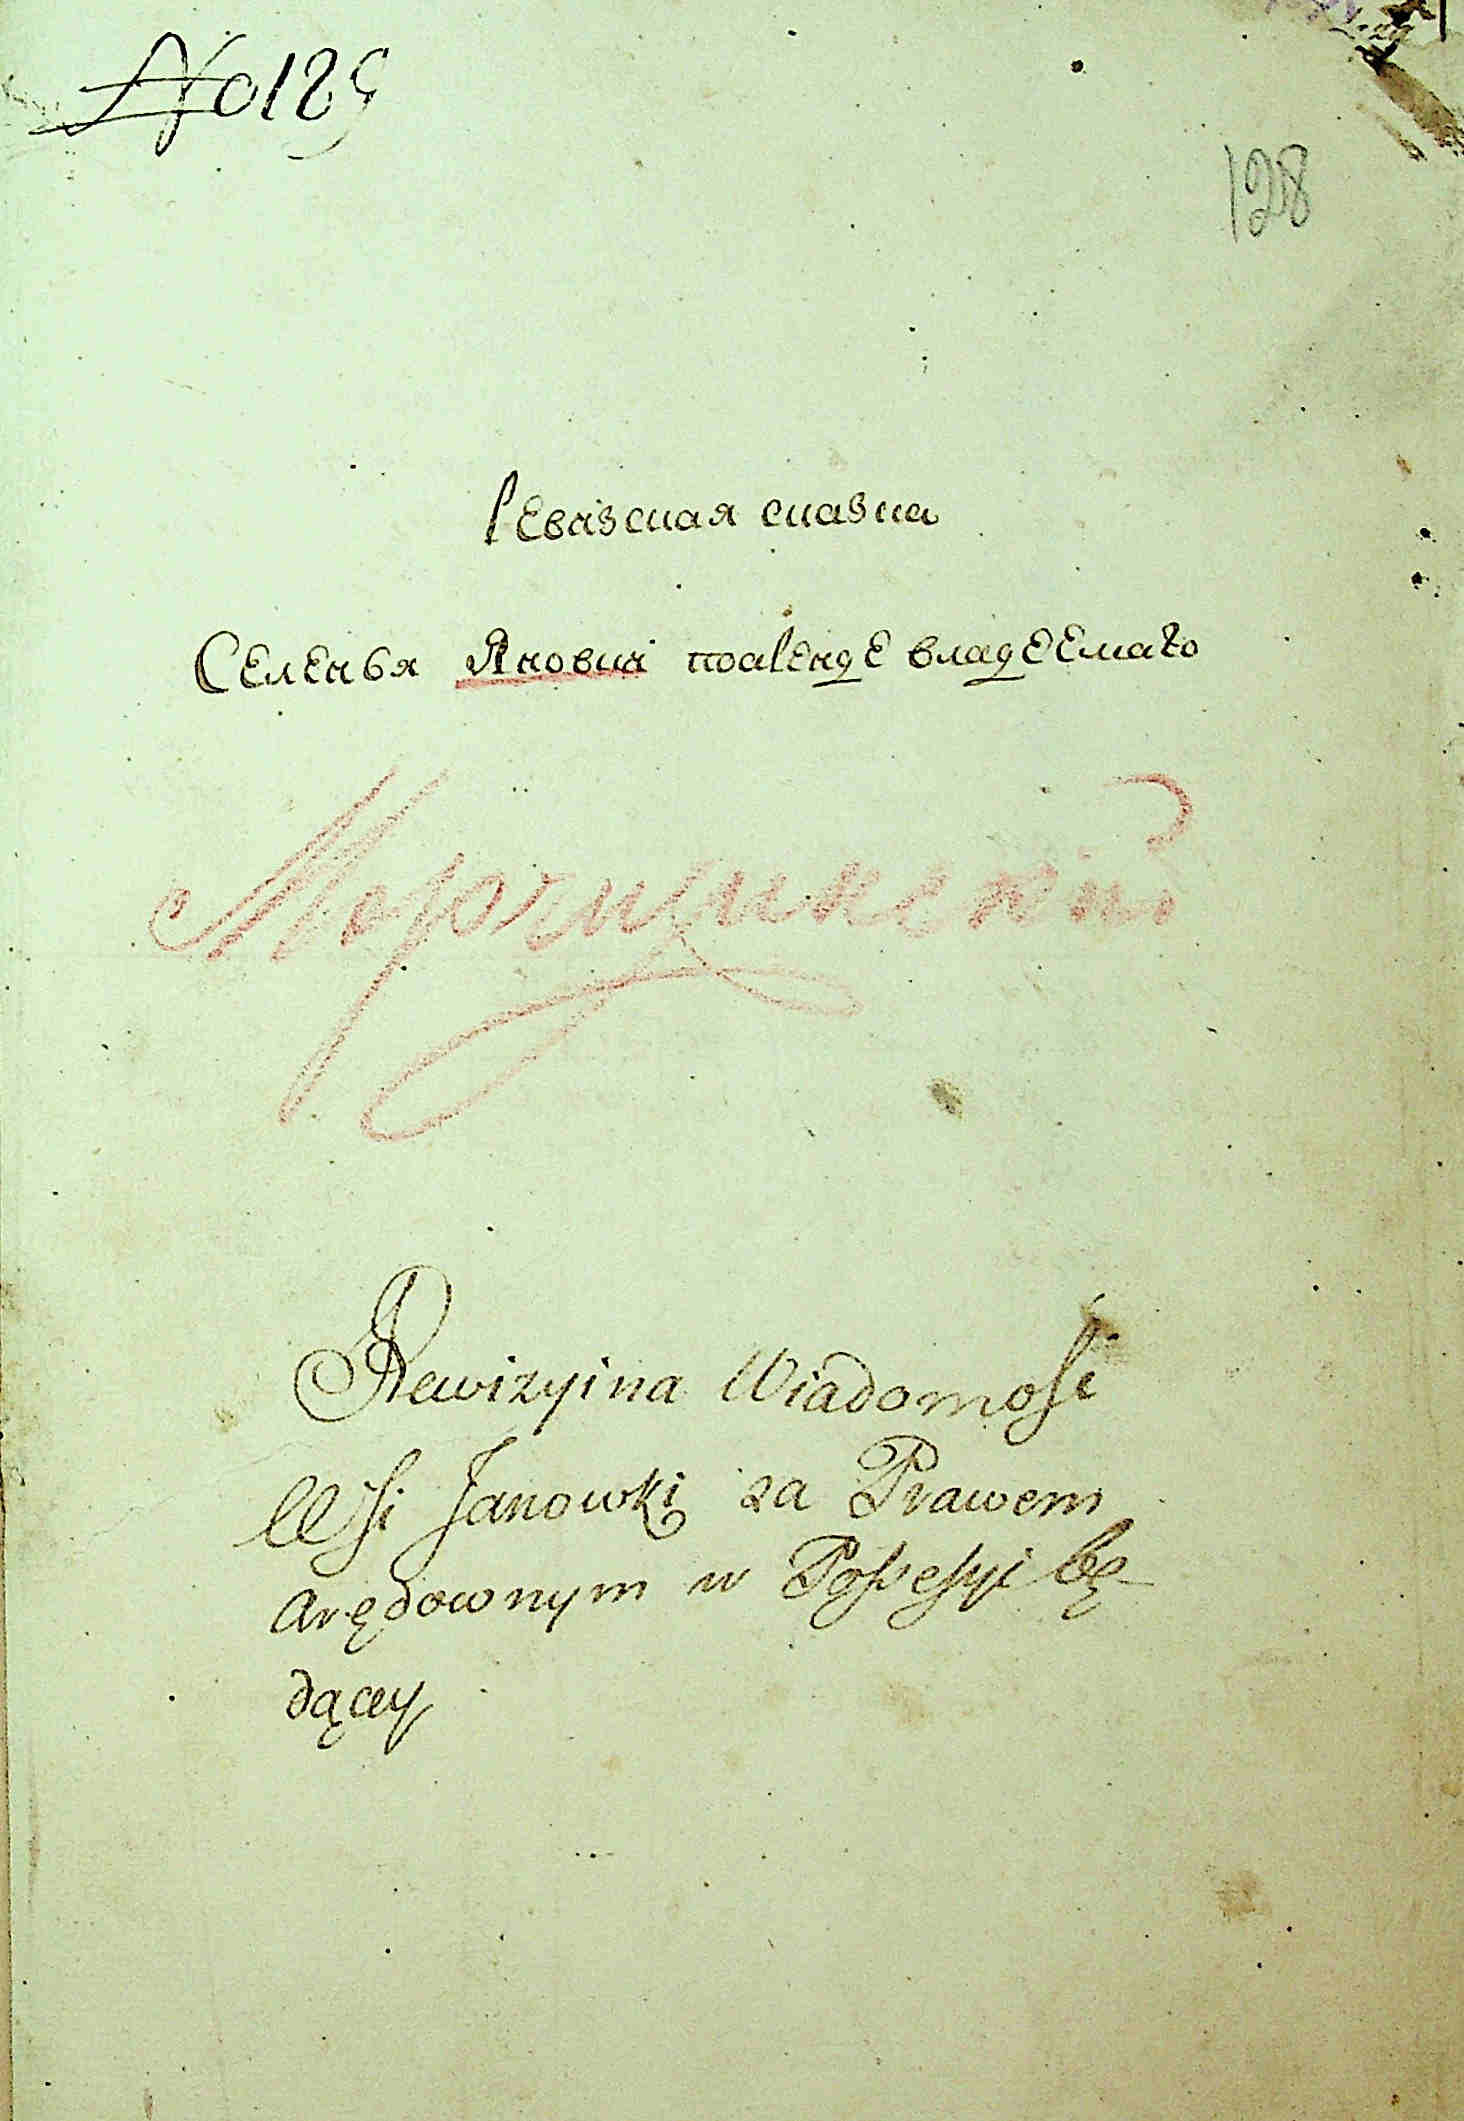 № 185
128
Ревизская сказка
Селенья Яновки поаренде владеемаго
Морочинский
Rewizyina Wiadomość
Wsi Janowki za Prawem
Arędownym w Possessyi bę
dący